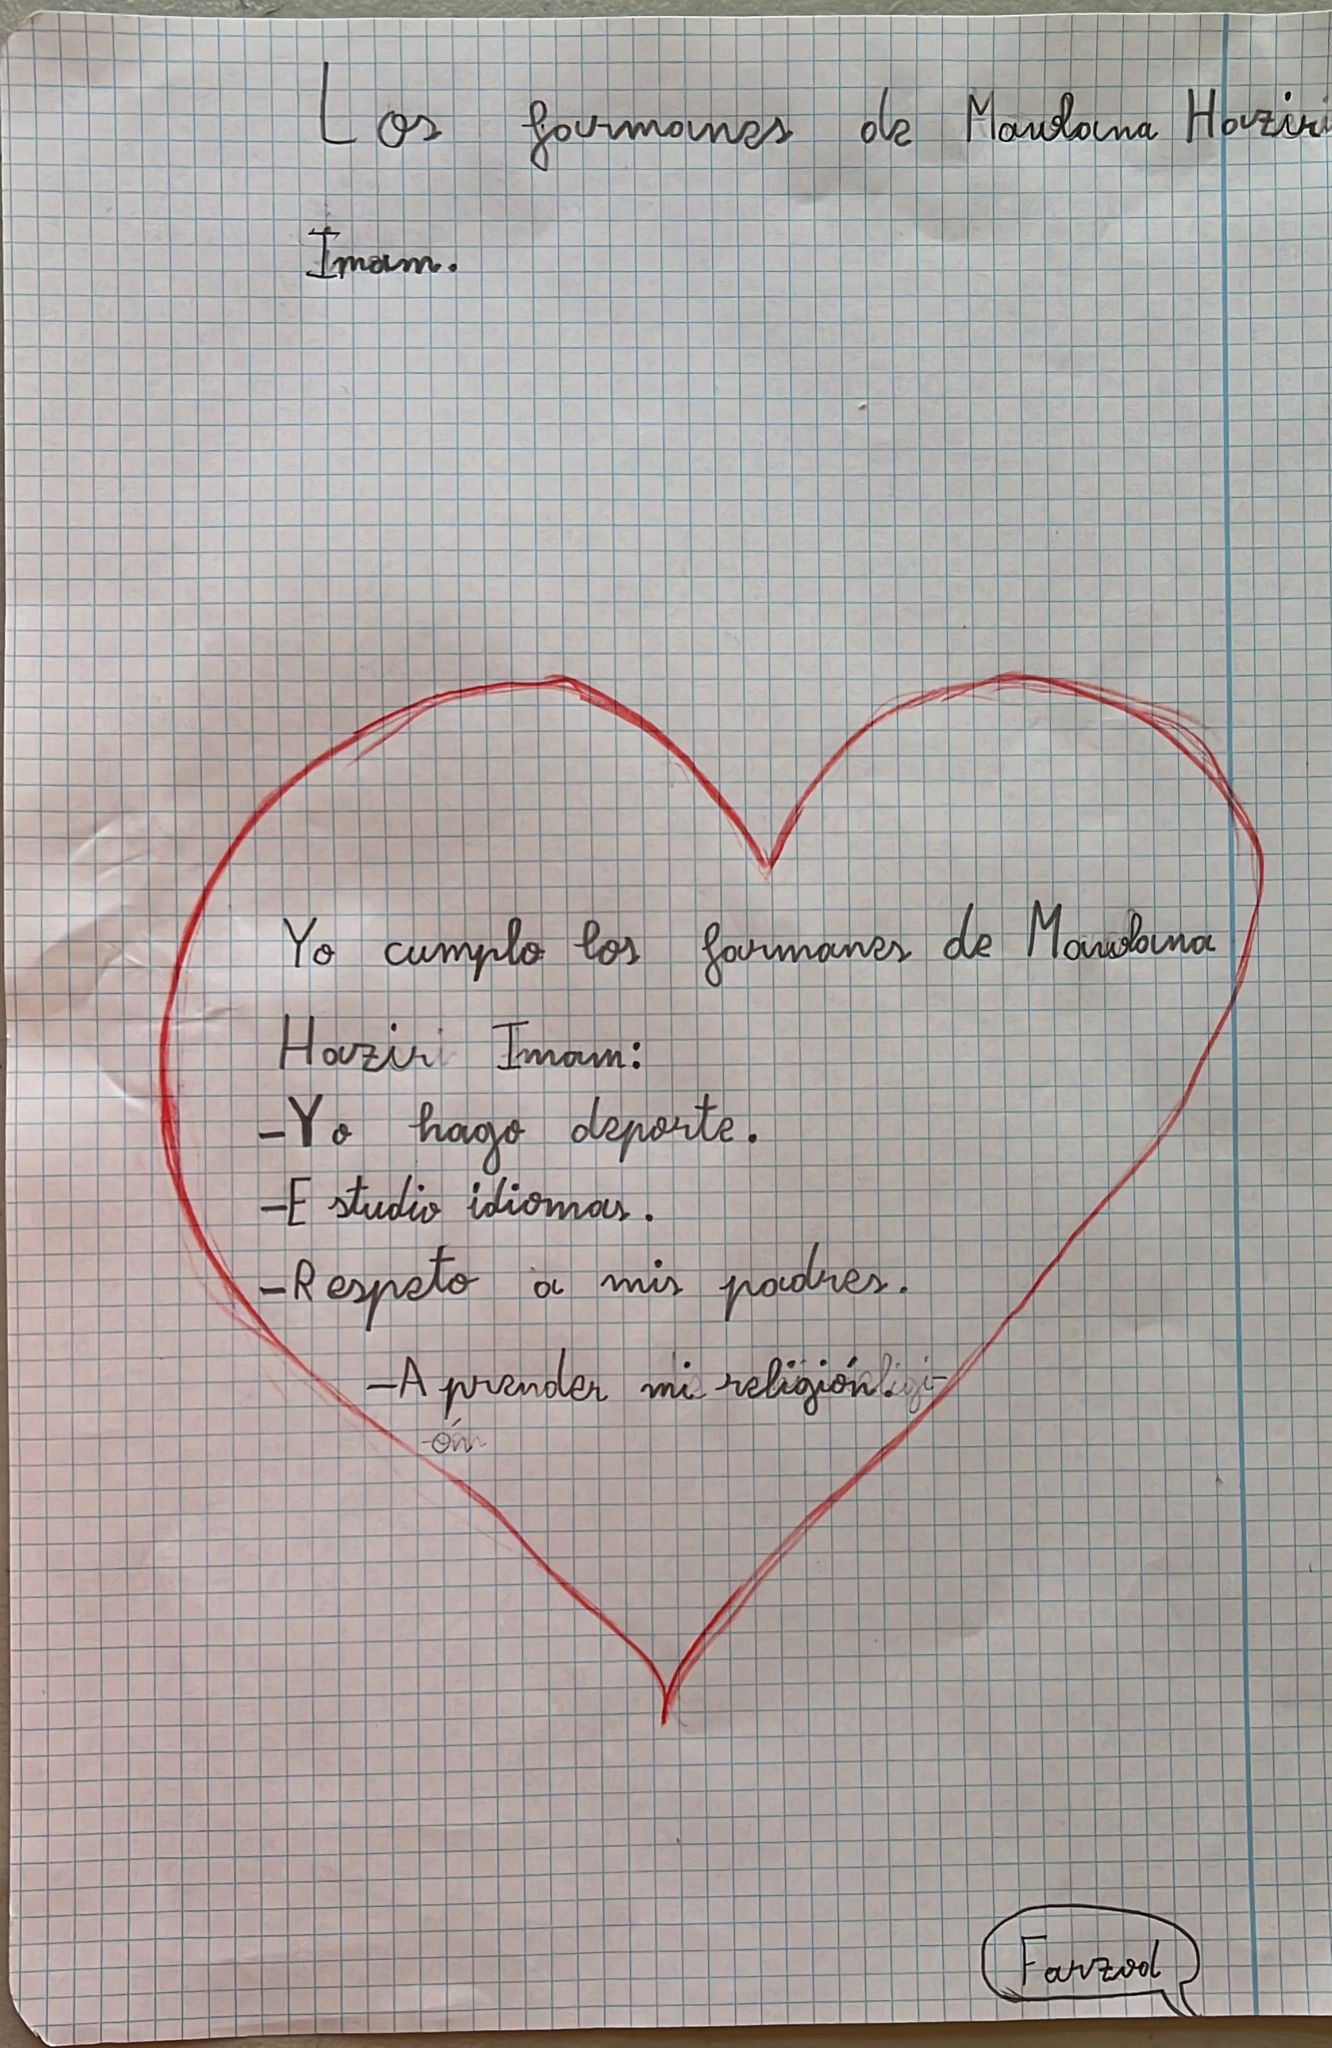 Los farmanes de Mawlana Haziri
Imam.
Yo cumplo los farmanes de Mawlana
Haziri Imam:
-Yo hago deporte.
-Estudio idiomas.
-Respeto a mis padres.
-Aprender mi religión.
Farzod